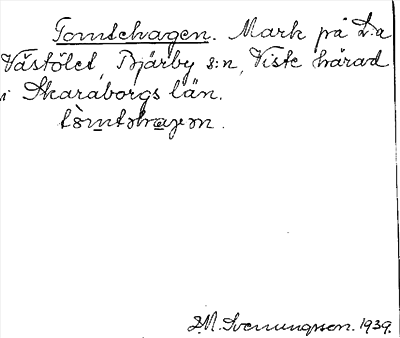 Tomtehagen. Mark på L:a
Västölet, Bjärby s:n, Viste härad
i Skaraborgs län.
tòmtəhagən.
S.M. Svenungsson. 1939.